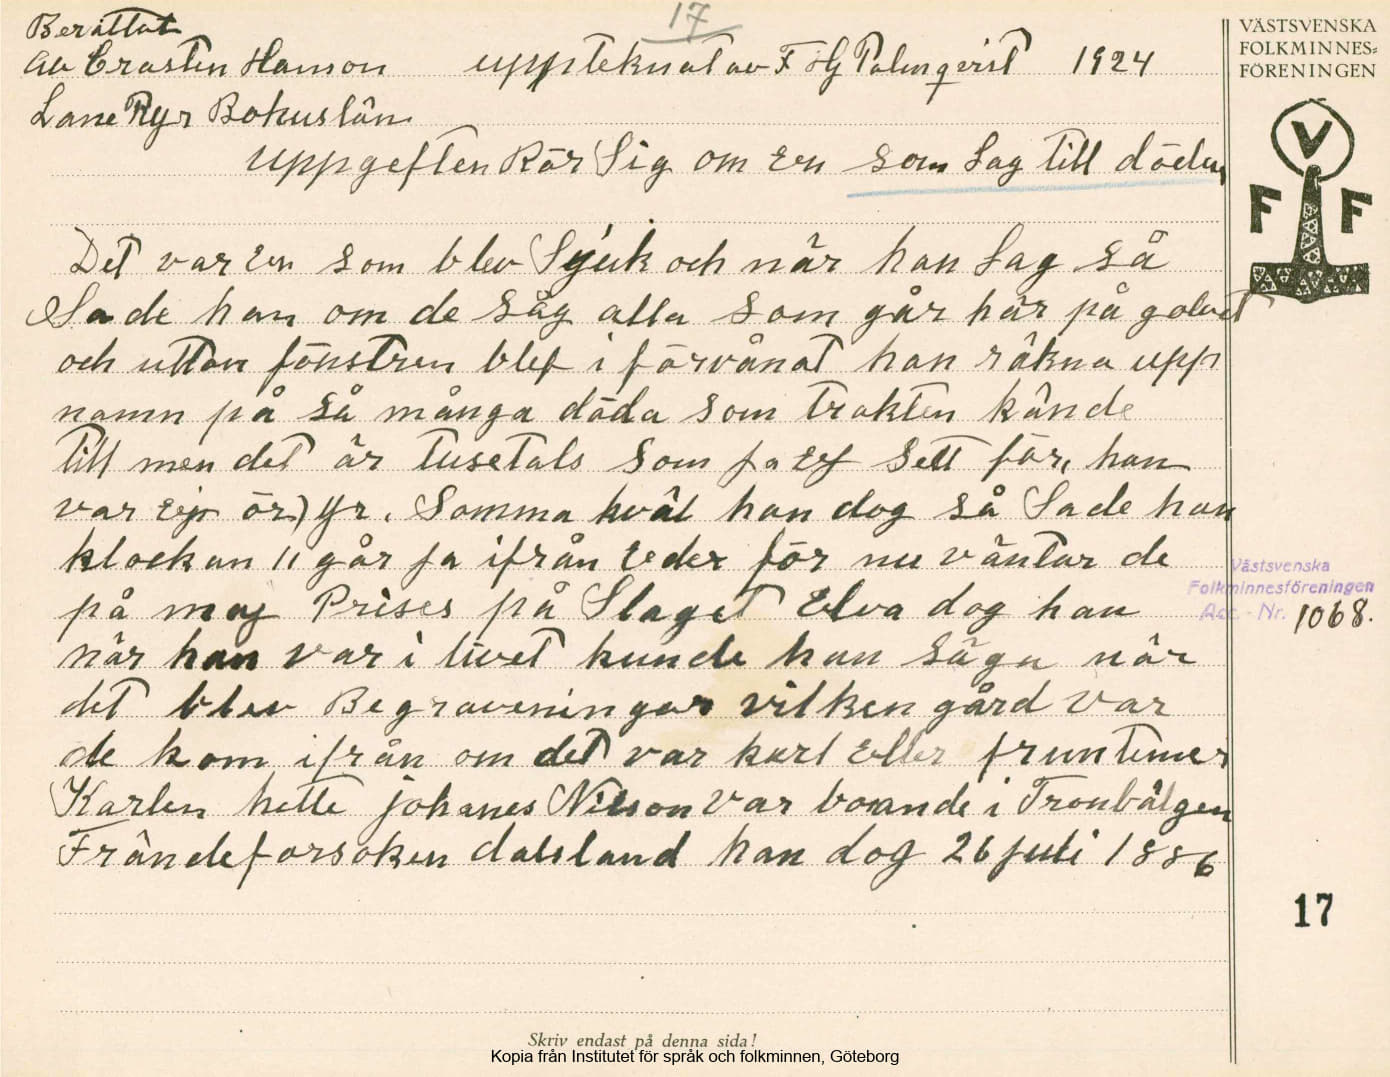 17
Berättat
av Crasten Hanson uppteknat av F Hj Palmqvist 1924
Lane Ryr Bohuslän
uppgeften Rör Sig om En som Lag till döden
Det var En som blev Sjuk och när han Lag så
Sade han om de såg alla som går här på golvet
och uttan fönstren blef i förvånat han räkna upp
namn på så många döda som trakten kände
till men det är tusetals som ja Ef sett för, han
var Eip ör) yr. Somma kväl han dog så Sade han
klockan 11 går ja ifrån Eder för nu väntar de
på maj Prises på Slaget Elva dog han
när han var i livet kunde han säga när
det blev Begraveningar vilken gård var
de kom ifrån om det var karl Eller fruntimer
Karlen hette johanes Nilson var boande i Tronbälgen
Frändeforsoken dalsland han dog 26 juli 1886
VÄSTSVENSKA
FOLKMINNES=
FÖRENINGEN
V
F F
Västsvenska
Folkminnesföreningen
Acc.-Nr. 1068.
17
Skriv endast på denna sida!
Kopia från Institutet för språk och folkminnen, Göteborg